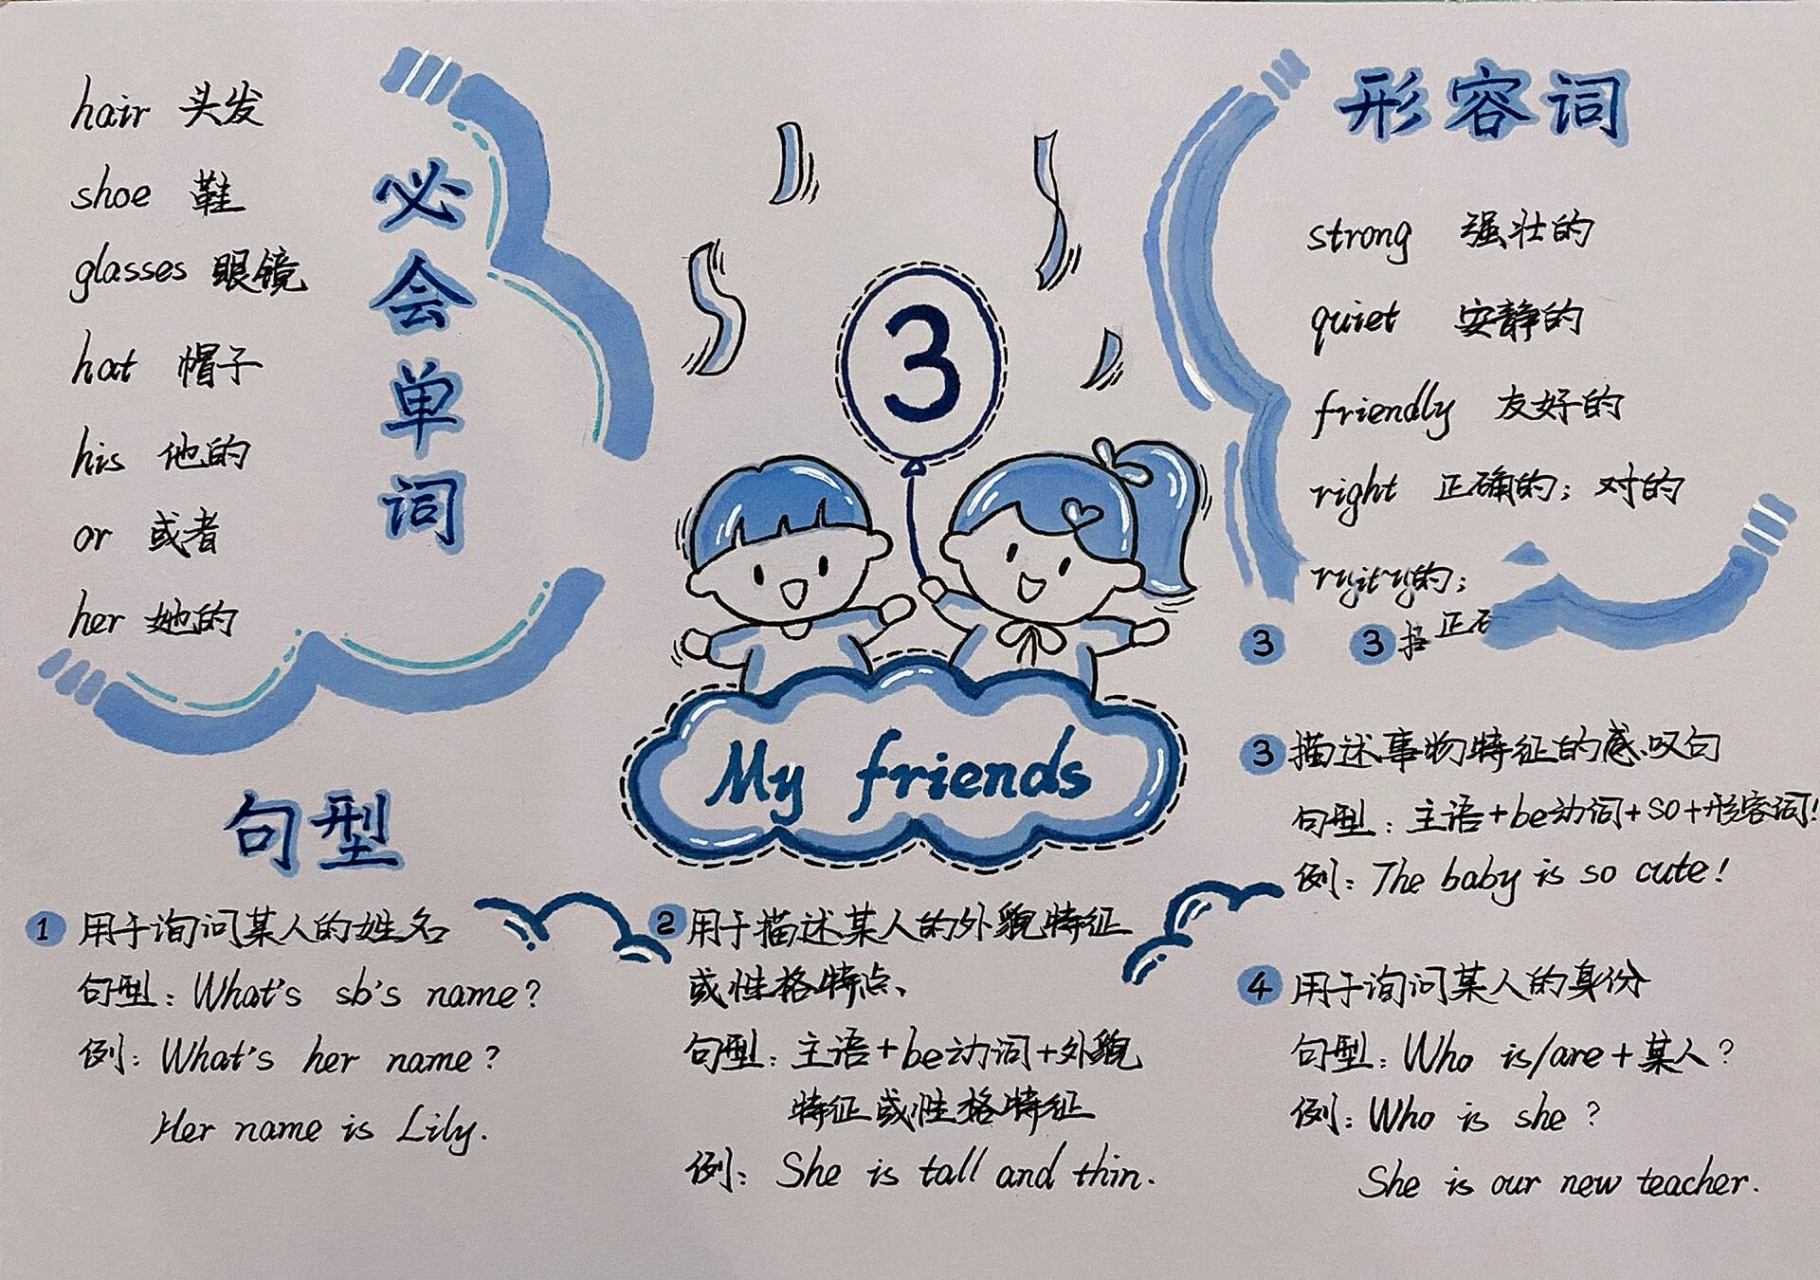 必会单词
hair 头发
shoe 鞋
glasses 眼镜
hat 帽子
his 他的
or 或者
her 她的
3
My friends
形容词
strong 强壮的
quiet 安静的
friendly 友好的
right 正确的；对的
的；
3 3
正
句型
1 用于询问某人的姓名
句型：What's sb's name?
例：What's her name?
Her name is Lily.
2 用于描述某人的外貌特征
或性格特点、
句型：主语+be动词+外貌
特征或性格特征
例：She is tall and thin.
3 描述事物特征的感叹句
句型：主语+be动词+so+形容词!
例：The baby is so cute!
4 用于询问某人的身份
句型：Who is/are+某人?
例：Who is she?
She is our new teacher.